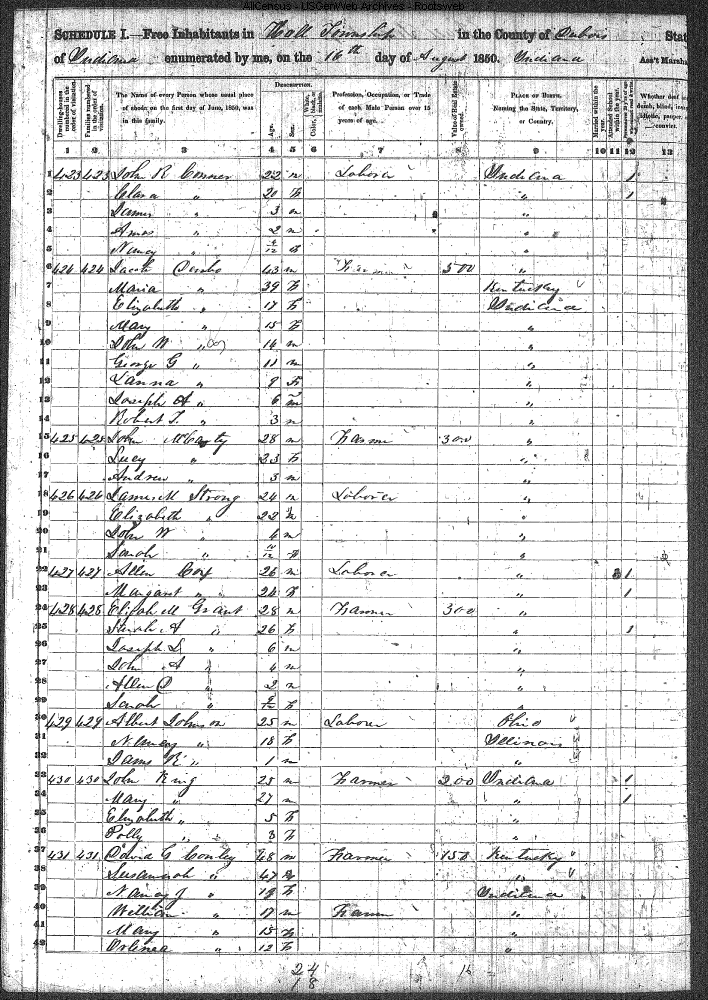 AllCensus - USGenWeb Archives - Rootsweb
SCHEDULE I.—Free Inhabitants in Hall Township in the County of Dubois State
of Indiana enumerated by me, on the 16th day of August 1850. Indiana Ass't Marsha
DESCRIPTION.
Dwelling-houses numbered in the order of visitation.
Families numbered in the order of visitation.
The Name of every Person whose usual place of abode on the first day of June, 1850, was in this family.
Age.
Sex.
Color, White, black, or mulatto.
Profession, Occupation, or Trade of each Male Person over 15 years of age.
Value of Real Estate owned.
PLACE OF BIRTH. Naming the State, Territory, or Country.
Married within the year.
Attended School within the year.
Whether deaf and dumb, blind, insane, idiotic, pauper, or convict.
1 2 3 4 5 6 7 8 9 10 11 12 13
1 423 423 John R Conner 22 m Laborer Indiana 1
2 Clara " 20 f " 1
3 James " 3 m "
4 Amos " 2 m "
5 Nancy " f "
6 424 424 Jacob 43 m Farmer 500 "
7 Maria " 39 f Kentucky
8 Elizabeth " 17 f Indiana
9 Mary " 15 f "
10 John W " 14 m "
11 George G " 11 m "
12 " 8 f "
13 Joseph A " 6 m "
14 Robert T. " 3 m "
15 425 425 John McCarty 28 m Farmer 300 "
16 Lucy " 23 f "
17 Andrew " 3 m "
18 426 426 James M Strong 24 m Laborer "
19 Elizabeth " 22 f "
20 John W " 4 m "
21 Sarah " f "
22 427 427 Allen Cox 26 m Laborer " 1
23 Margaret " 24 f " 1
24 428 428 Elijah M Grant 28 m Farmer 300 "
25 A " 26 f " 1
26 Joseph " 6 m "
27 John A " 4 m "
28 Allen D " 2 m "
29 Sarah " f "
30 429 429 Albert Johnson 25 m Laborer Ohio
31 Nancy " 18 f Illinois
32 " 1 m "
33 430 430 John King 25 m Farmer 200 Indiana 1
34 Mary " 27 m " 1
35 Elizabeth " 5 f "
36 Polly " 3 f "
37 431 431 G Conley 48 m Farmer 150 Kentucky
38 Susannah " 47 f "
39 Nancy J " 19 f Indiana
40 William " 17 m Farmer "
41 Mary " 15 f "
42 " 12 f "
24
18